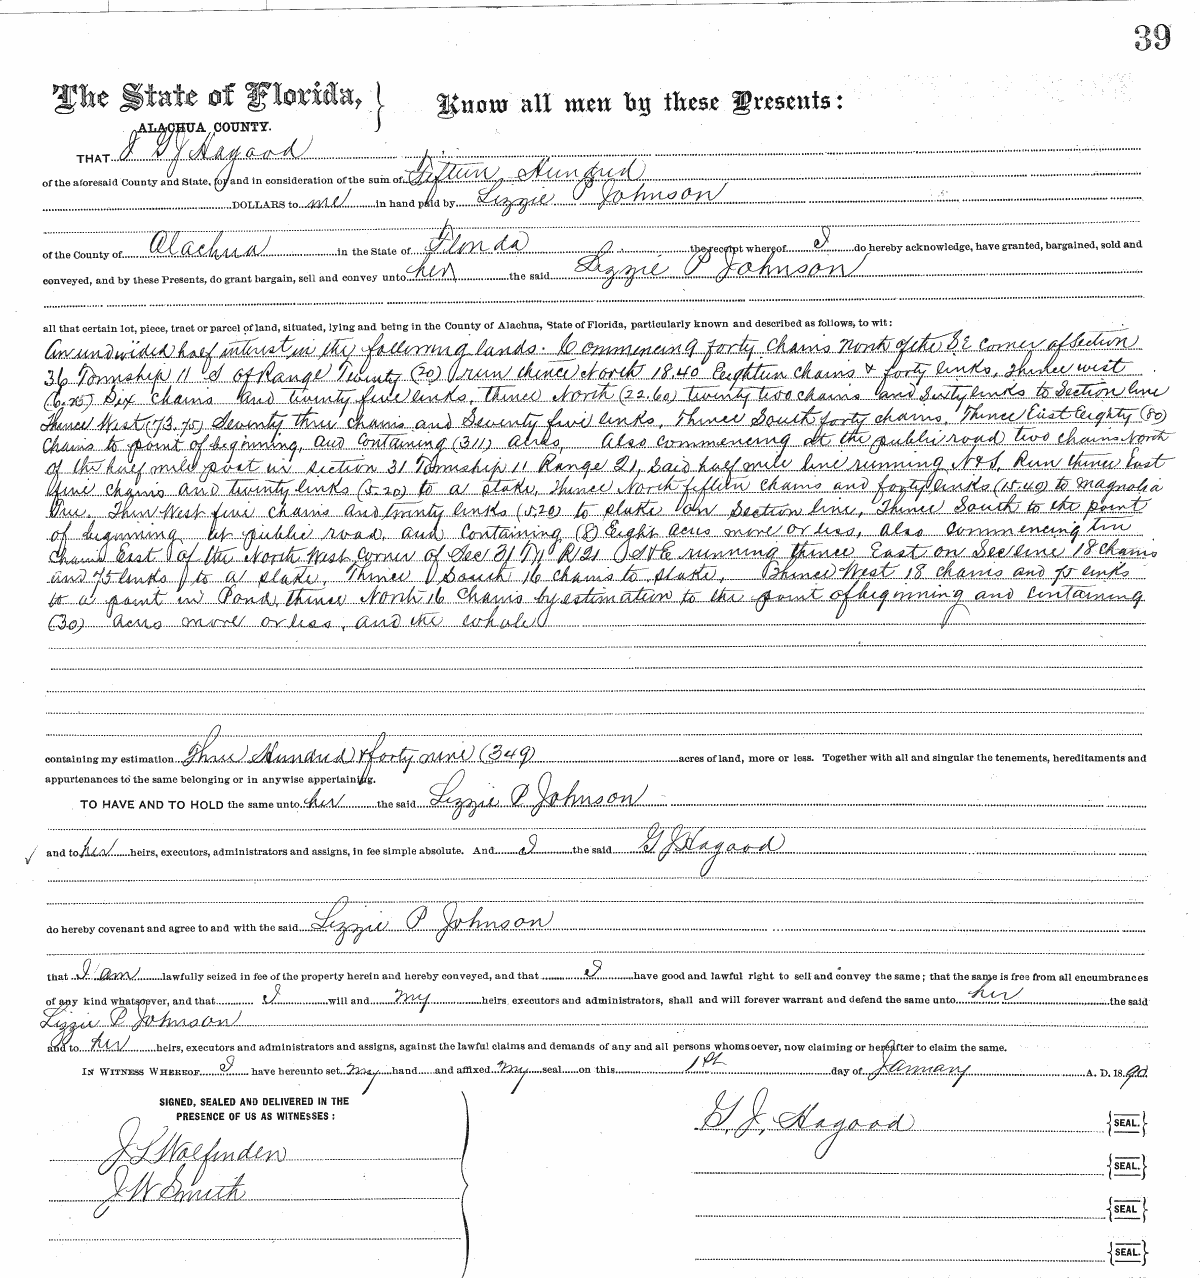 39
The State of Florida,
ALACHUA COUNTY.
Know all men by these Presents:
THAT I G J Hagood
of the aforesaid County and State, for and in consideration of the sum of Fifteen Hundred
DOLLARS to me in hand paid by Lizzie P Johnson
of the County of Alachua in the State of Florida the receipt whereof I do hereby acknowledge, have granted, bargained, sold and
conveyed, and by these Presents, do grant bargain, sell and convey unto her the said Lizzie P Johnson
all that certain lot, piece, tract or parcel of land, situated, lying and being in the County of Alachua, State of Florida, particularly known and described as follows, to wit:
An undivided half interest in the following lands. Commencing forty chains north of the S.E corner of Section
36 Township 11 S of Range Twenty (20) run thence North 18.40 Eighteen chains & forty links, thence west
(6.25) Six chains and twenty five links, thence North (22.60) twenty two chains and Sixty links to Section line
Thence West (73.75) Seventy three chains and Seventy five links, Thence South forty chains, Thence East Eighty (80)
Chains to point of beginning, and containing (311) acres, Also commencing at the public road two chains North
of the half mile post in section 31 Township 11 Range 21, Said half mile line running N & S, Run thence East
five chains and twenty links (5.20) to a stake, thence North fifteen chains and forty links (15.40) to Magnolia
Tree. Then West five chains and twenty links (5.20) to stake on Section line, Thence South to the point
of beginning at public road, and containing (8) Eight acres more or less, also commencing ten
chains East of the North West corner of Sec 31 T 11 R 21 S & E running thence East on Sec line 18 chains
and 75 links to a stake, Thence South 16 chains to stake, Thence West 18 chains and 75 links
to a point in Pond, thence North 16 Chains by estimation to the point of beginning and containing
(30) acres more or less, and the whole
containing my estimation Three Hundred & forty nine (349) acres of land, more or less. Together with all and singular the tenements, hereditaments and
appurtenances to the same belonging or in anywise appertaining.
TO HAVE AND TO HOLD the same unto her the said Lizzie P Johnson
and to her heirs, executors, administrators and assigns, in fee simple absolute. And I the said G J Hagood
do hereby covenant and agree to and with the said Lizzie P Johnson
that I am lawfully seized in fee of the property herein and hereby conveyed, and that I have good and lawful right to sell and convey the same; that the same is free from all encumbrances
of any kind whatsoever, and that I will and my heirs, executors and administrators, shall and will forever warrant and defend the same unto her the said
Lizzie P Johnson
and to her heirs, executors and administrators and assigns, against the lawful claims and demands of any and all persons whomsoever, now claiming or hereafter to claim the same.
IN WITNESS WHEREOF I have hereunto set my hand and affixed my seal on this 1st day of January A. D. 1890.
SIGNED, SEALED AND DELIVERED IN THE
PRESENCE OF US AS WITNESSES:
G. J. Hagood SEAL.
J L Wolfenden
SEAL.
J W Smith
SEAL
SEAL.